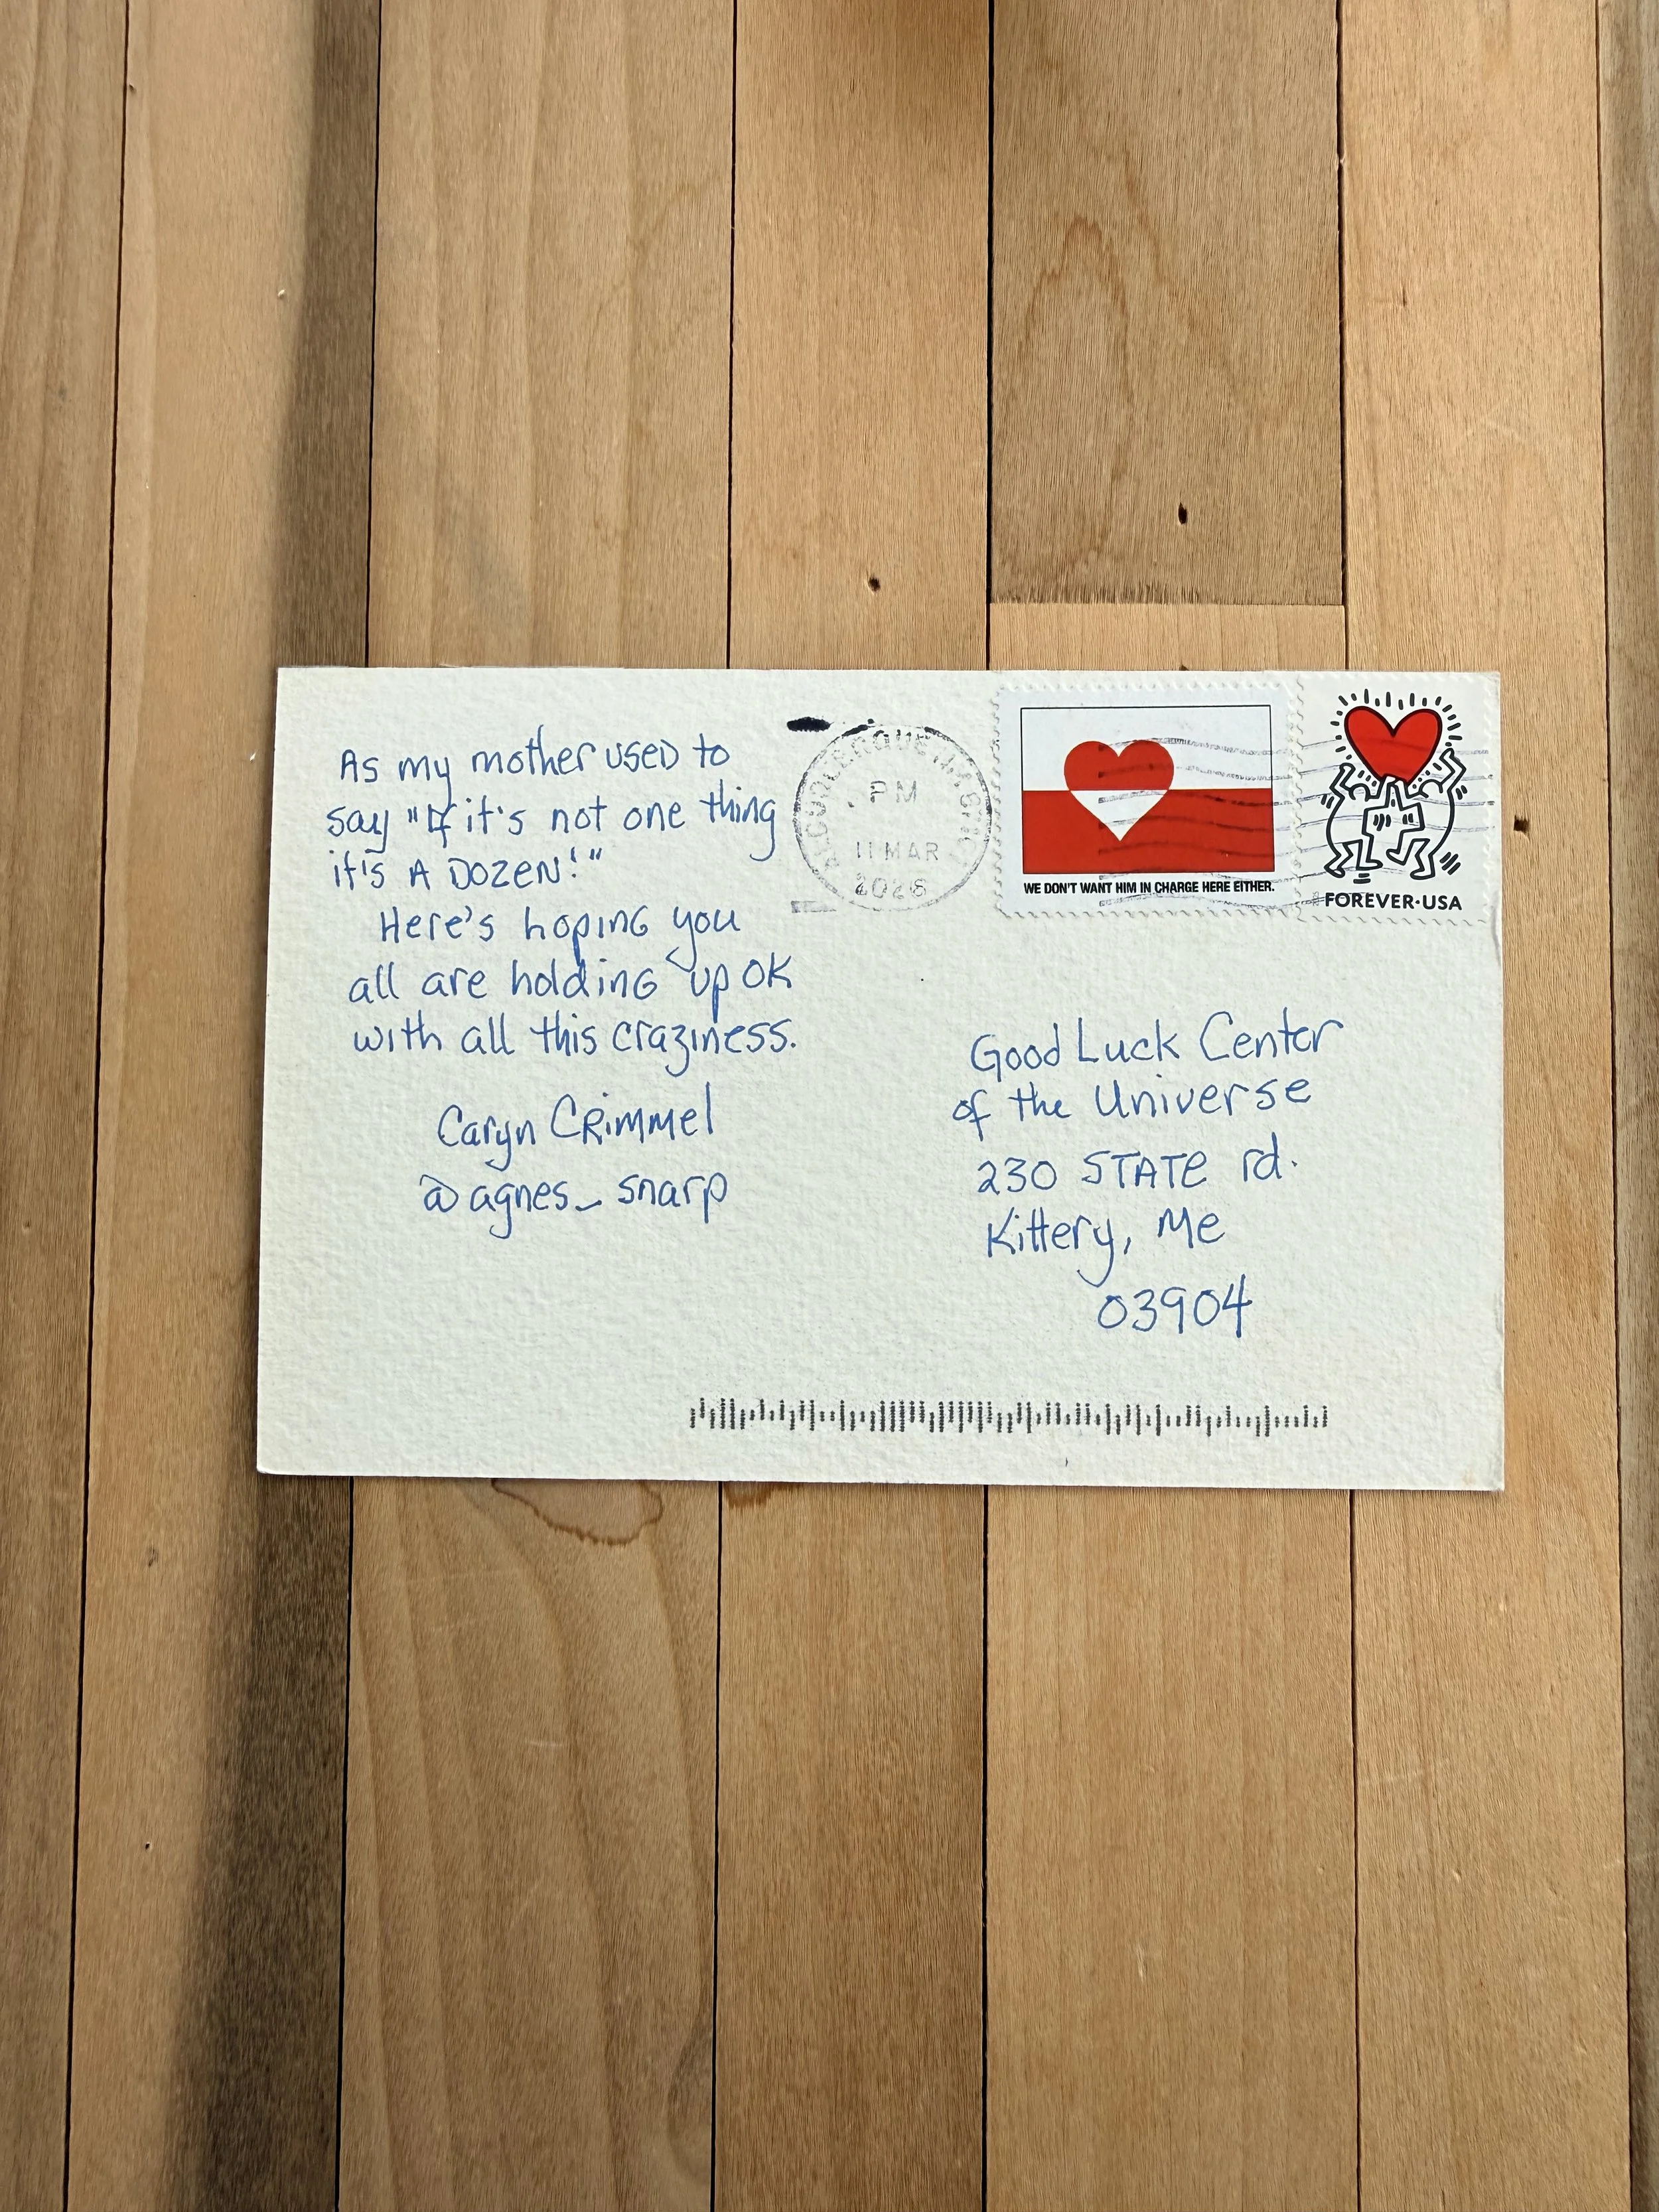 As my mother used to
say "If it's not one thing
it's A Dozen!"
Here's hoping you
all are holding up OK
with all this craziness.
Caryn Crimmel
@agnes_snarp
PM
11 MAR
2026
WE DON'T WANT HIM IN CHARGE HERE EITHER.
FOREVER·USA
Good Luck Center
of the Universe
230 STATE rd.
Kittery, Me
03904